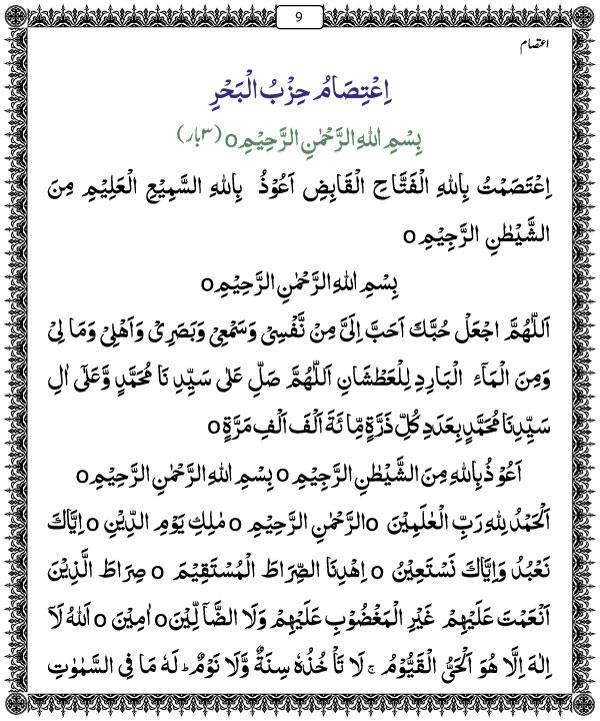 9
اعتصام
اِعْتِصَامُ حِزْبُ الْبَحْرِ
بِسْمِ اللهِ الرَّحْمٰنِ الرَّحِيْمِ o (۳ بار)
اِعْتَصَمْتُ بِاللهِ الْفَتَّاحِ الْقَابِضِ اَعُوْذُ بِاللهِ السَّمِيْعِ الْعَلِيْمِ مِنَ
الشَّيْطٰنِ الرَّجِيْمِ o
بِسْمِ اللهِ الرَّحْمٰنِ الرَّحِيْمِ o
اَللّٰهُمَّ اجْعَلْ حُبَّكَ اَحَبَّ اِلَىَّ مِنْ نَّفْسِىْ وَسَمْعِىْ وَبَصَرِىْ وَاَهْلِىْ وَمَا لِىْ
وَمِنَ الْمَآءِ الْبَارِدِ لِلْعَطْشَانِ اَللّٰهُمَّ صَلِّ عَلٰى سَيِّدِ نَا مُحَمَّدٍ وَّعَلٰٓى اٰلِ
سَيِّدِنَا مُحَمَّدٍ بِعَدَدِ كُلِّ ذَرَّةٍ مِّائَةَ اَلْفَ اَلْفِ مَرَّةٍ o
اَعُوْذُ بِاللهِ مِنَ الشَّيْطٰنِ الرَّجِيْمِ o بِسْمِ اللهِ الرَّحْمٰنِ الرَّحِيْمِ o
اَلْحَمْدُ لِلهِ رَبِّ الْعٰلَمِيْنَ o الرَّحْمٰنِ الرَّحِيْمِ o مٰلِكِ يَوْمِ الدِّيْنِ o اِيَّاكَ
نَعْبُدُ وَاِيَّاكَ نَسْتَعِيْنُ o اِهْدِنَا الصِّرَاطَ الْمُسْتَقِيْمَ o صِرَاطَ الَّذِيْنَ
اَنْعَمْتَ عَلَيْهِمْ غَيْرِ الْمَغْضُوْبِ عَلَيْهِمْ وَلَا الضَّآلِّيْنَ o اٰمِيْنَ o اَللهُ لَآ
اِلٰهَ اِلَّا هُوَ اَلْحَىُّ الْقَيُّوْمُ ۚ لَا تَاْخُذُهٗ سِنَةٌ وَّلَا نَوْمٌ ؕ لَهٗ مَا فِى السَّمٰوٰتِ